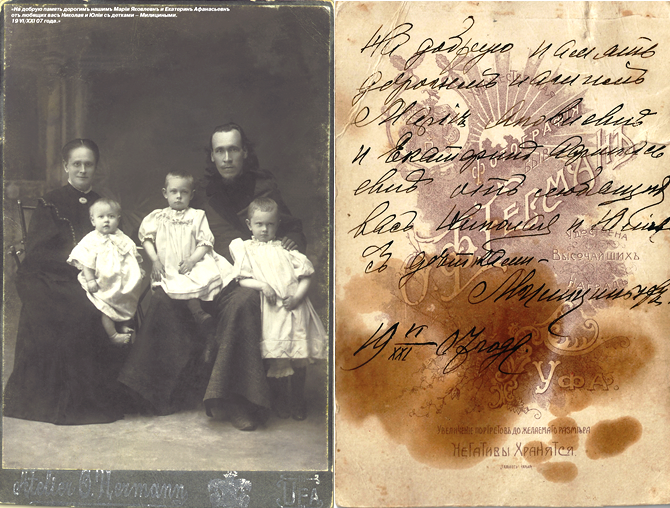 «На добрую память дорогимъ нашимъ Маріи Яковлевнѣ и Екатеринѣ Афанасьевнѣ
отъ любящихъ васъ Николая и Юліи съ детками – Милициными.
19 VI/XXI 07 года.»
Atelier O. Hermann
UFA
На добрую память
дорогимъ нашимъ
Маріи Яковлевнѣ
и Екатеринѣ Афанась
евнѣ отъ любящихъ
васъ Николая и Юліи
съ дѣтками –
Милициными
19 VI/XXI 07 года.
ФОТОГРАФІЯ
ГЕРМАНЪ
ВЫСОЧАЙШИХЪ
УФА.
УВЕЛИЧЕНІЕ ПОРТРЕТОВЪ ДО ЖЕЛАЕМАГО РАЗМѢРА
НЕГАТИВЫ ХРАНЯТСЯ.